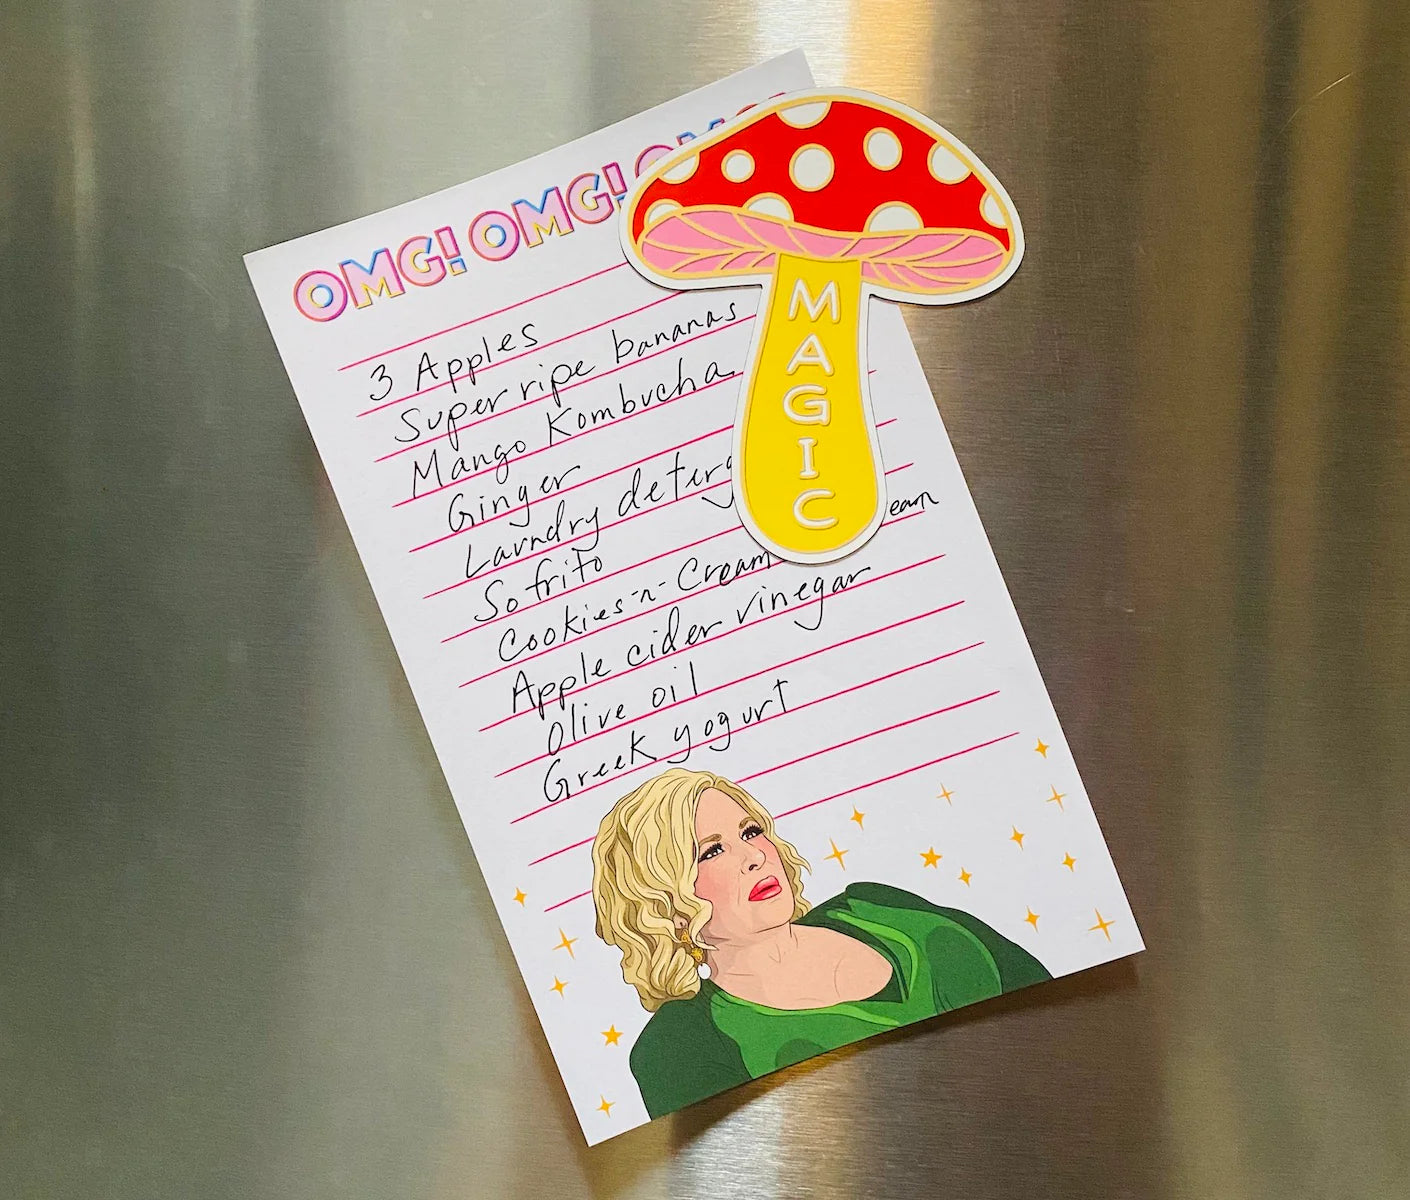 OMG! OMG! OMG!
MAGIC
3 Apples
Super ripe bananas
Mango Kombucha
Ginger
Laundry deterg
Sofrito
Cookies-n-Cream eam
Apple cider vinegar
Olive oil
Greek yogurt